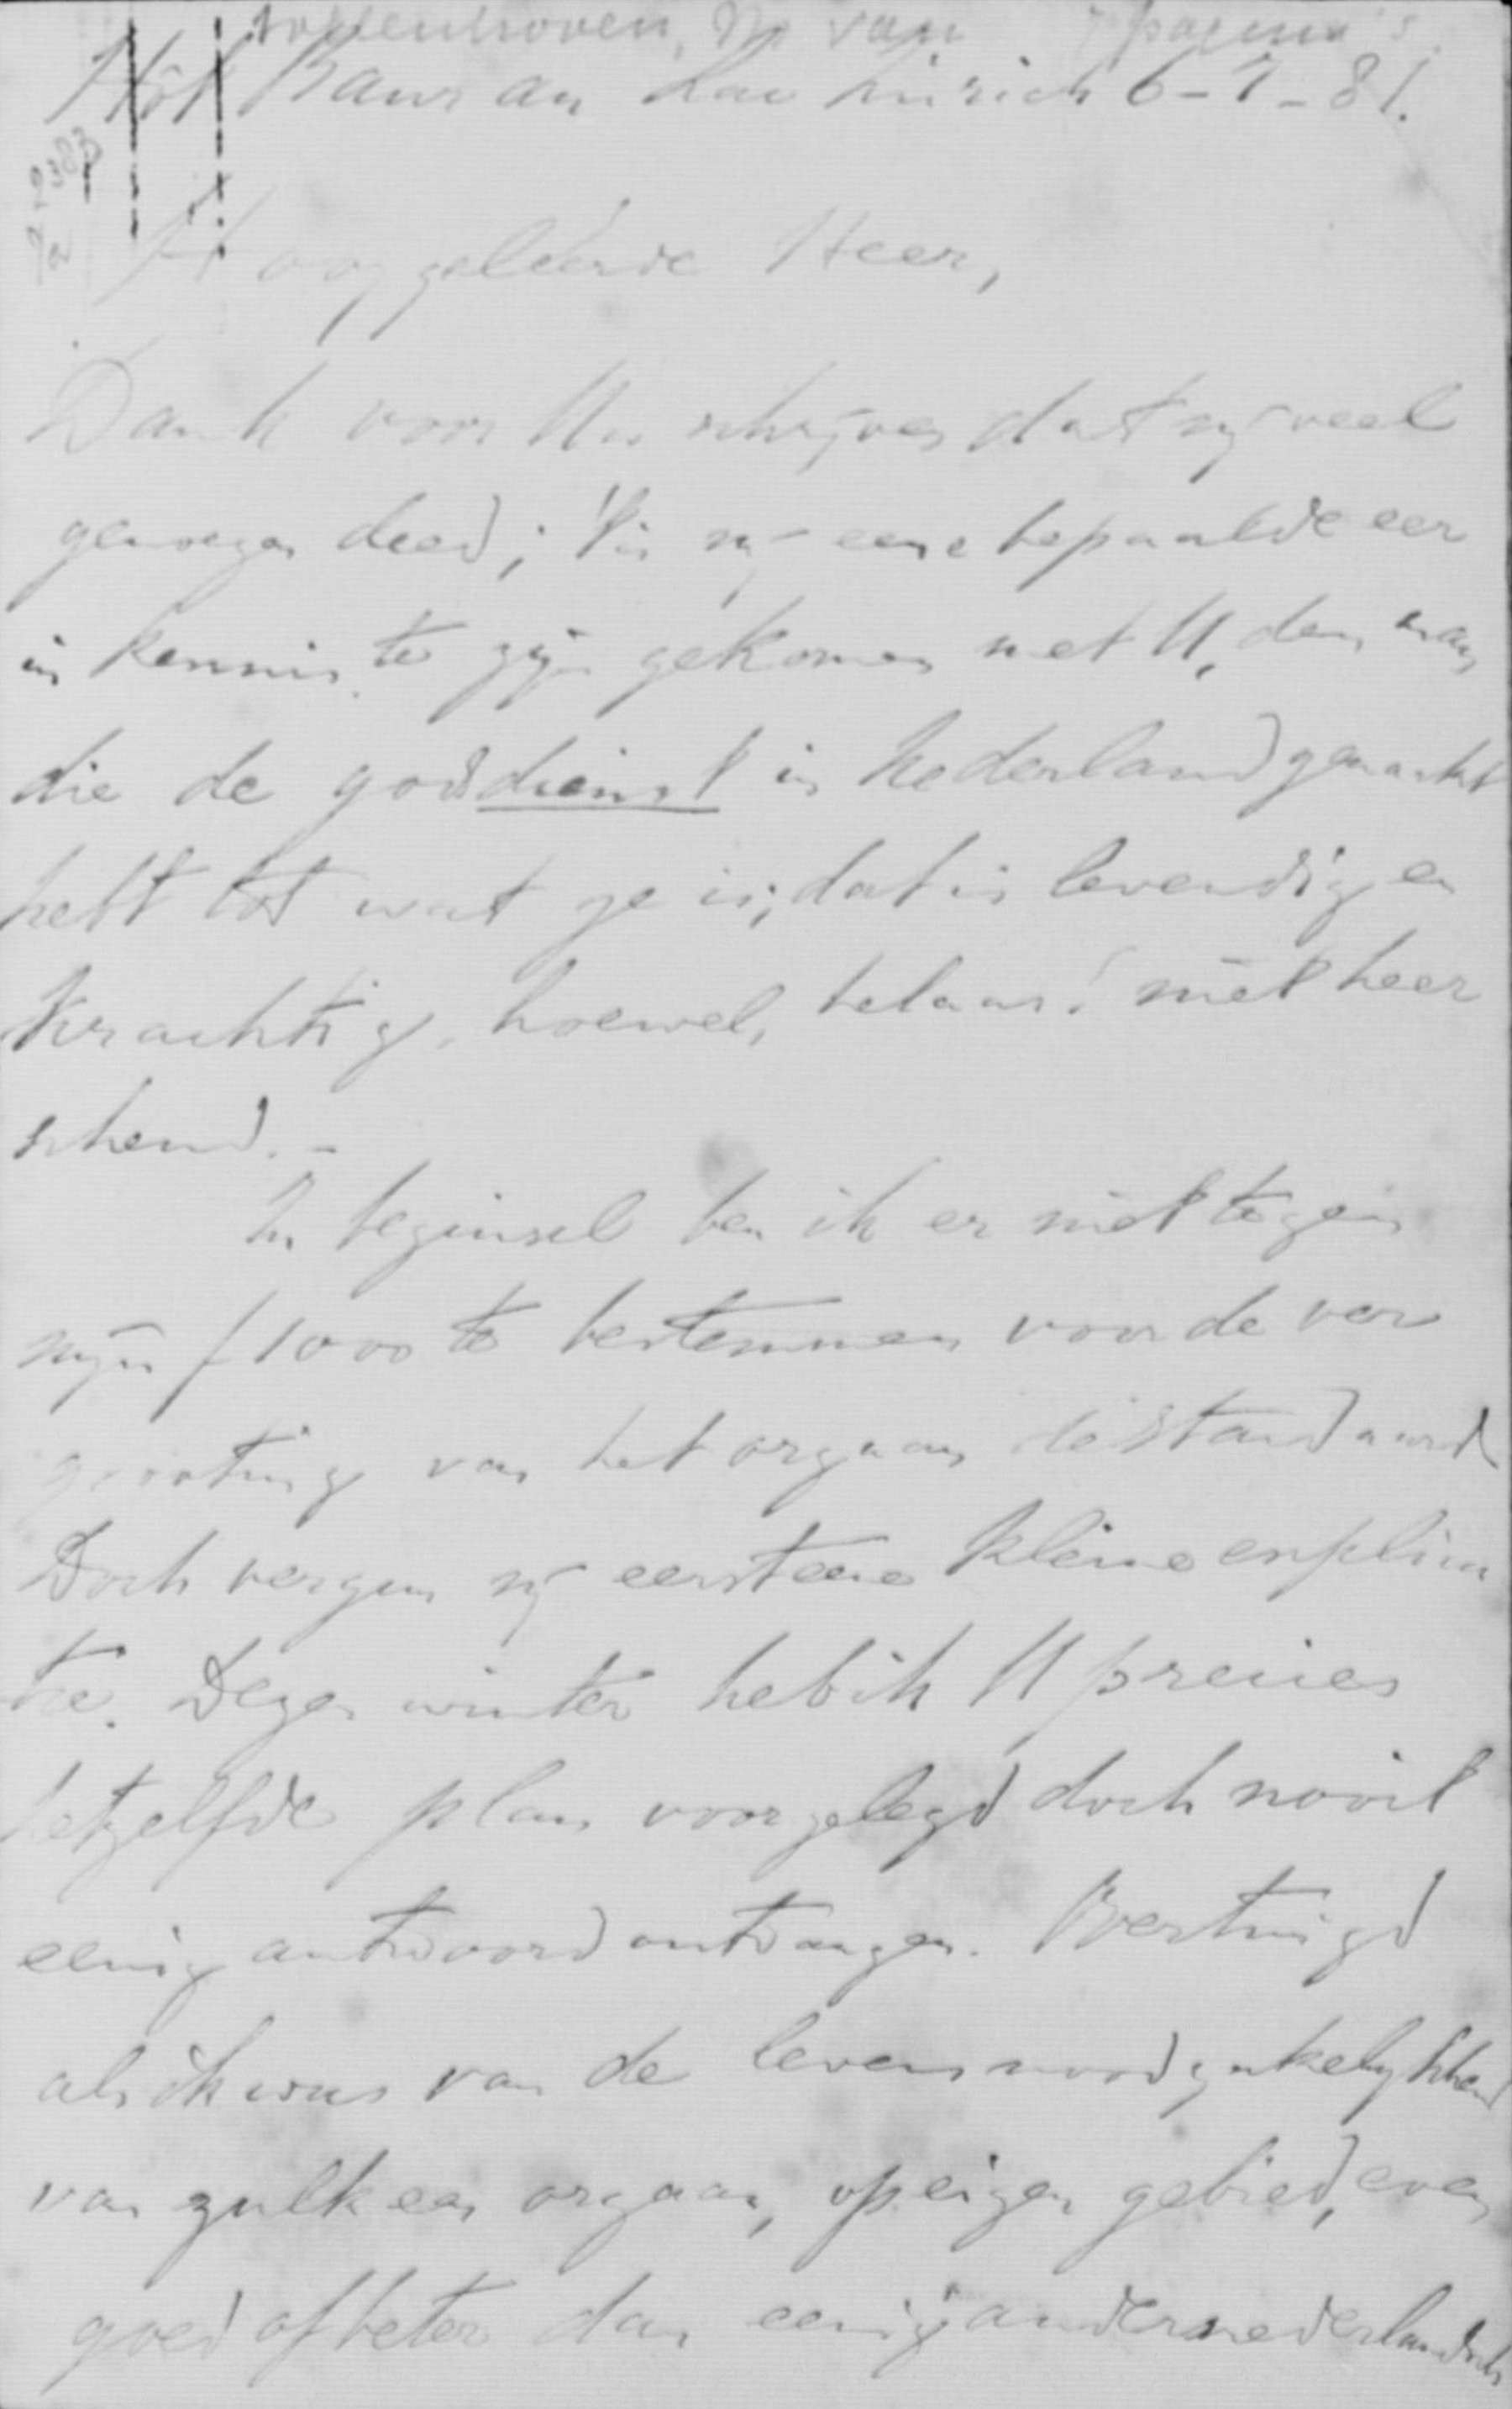 van pagina's
Hôt Baur au Lac Zürich 6-7-81.
2383
Hooggeleerde Heer,
Dank voor Uw schrijven dat mij veel
genoegen deed; 't is mij eene bepaalde eer
in kennis te zijn gekomen met U, den man
die de godsdienst in Nederland gemaakt
hebt tot wat ze is; dat is levendig en
krachtig, hoewel, helaas! niet heer
schend. -
In beginsel ben ik er niet tegen
mijn f 1000 te bestemmen voor de ver
grooting van het orgaan de Standaard
Doch vergun mij eerst eene kleine explica
tie. Dezen winter heb ik U precies
hetzelfde plan voorgelegd doch nooit
eenig antwoord ontvangen. Overtuigd
als ik was van de levensnoodzakelijkheid
van zulk een orgaan, op eigen gebied, even
goed of beter dan eenig ander nederlandsch